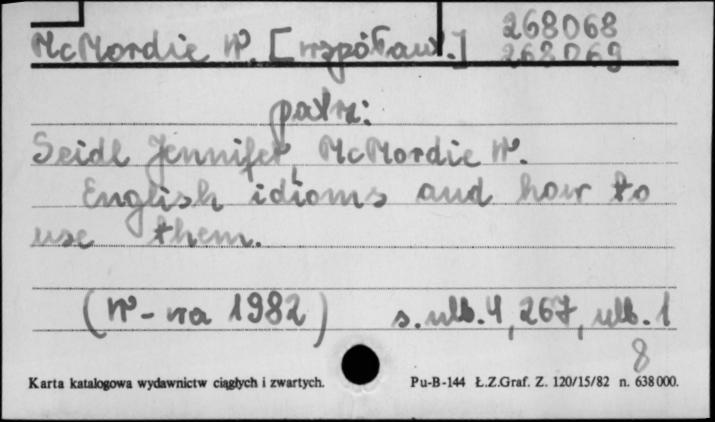 McMordie W. [współaut.] 268068
268069
patrz:
Seidl Jennifer, McMordie W.
English idioms and how to
use them.
(W-wa 1982) s. ulb. 4, 267, ulb. 1
8
Karta katalogowa wydawnictw ciągłych i zwartych. Pu-B-144 Ł.Z.Graf. Z. 120/15/82 n. 638000.